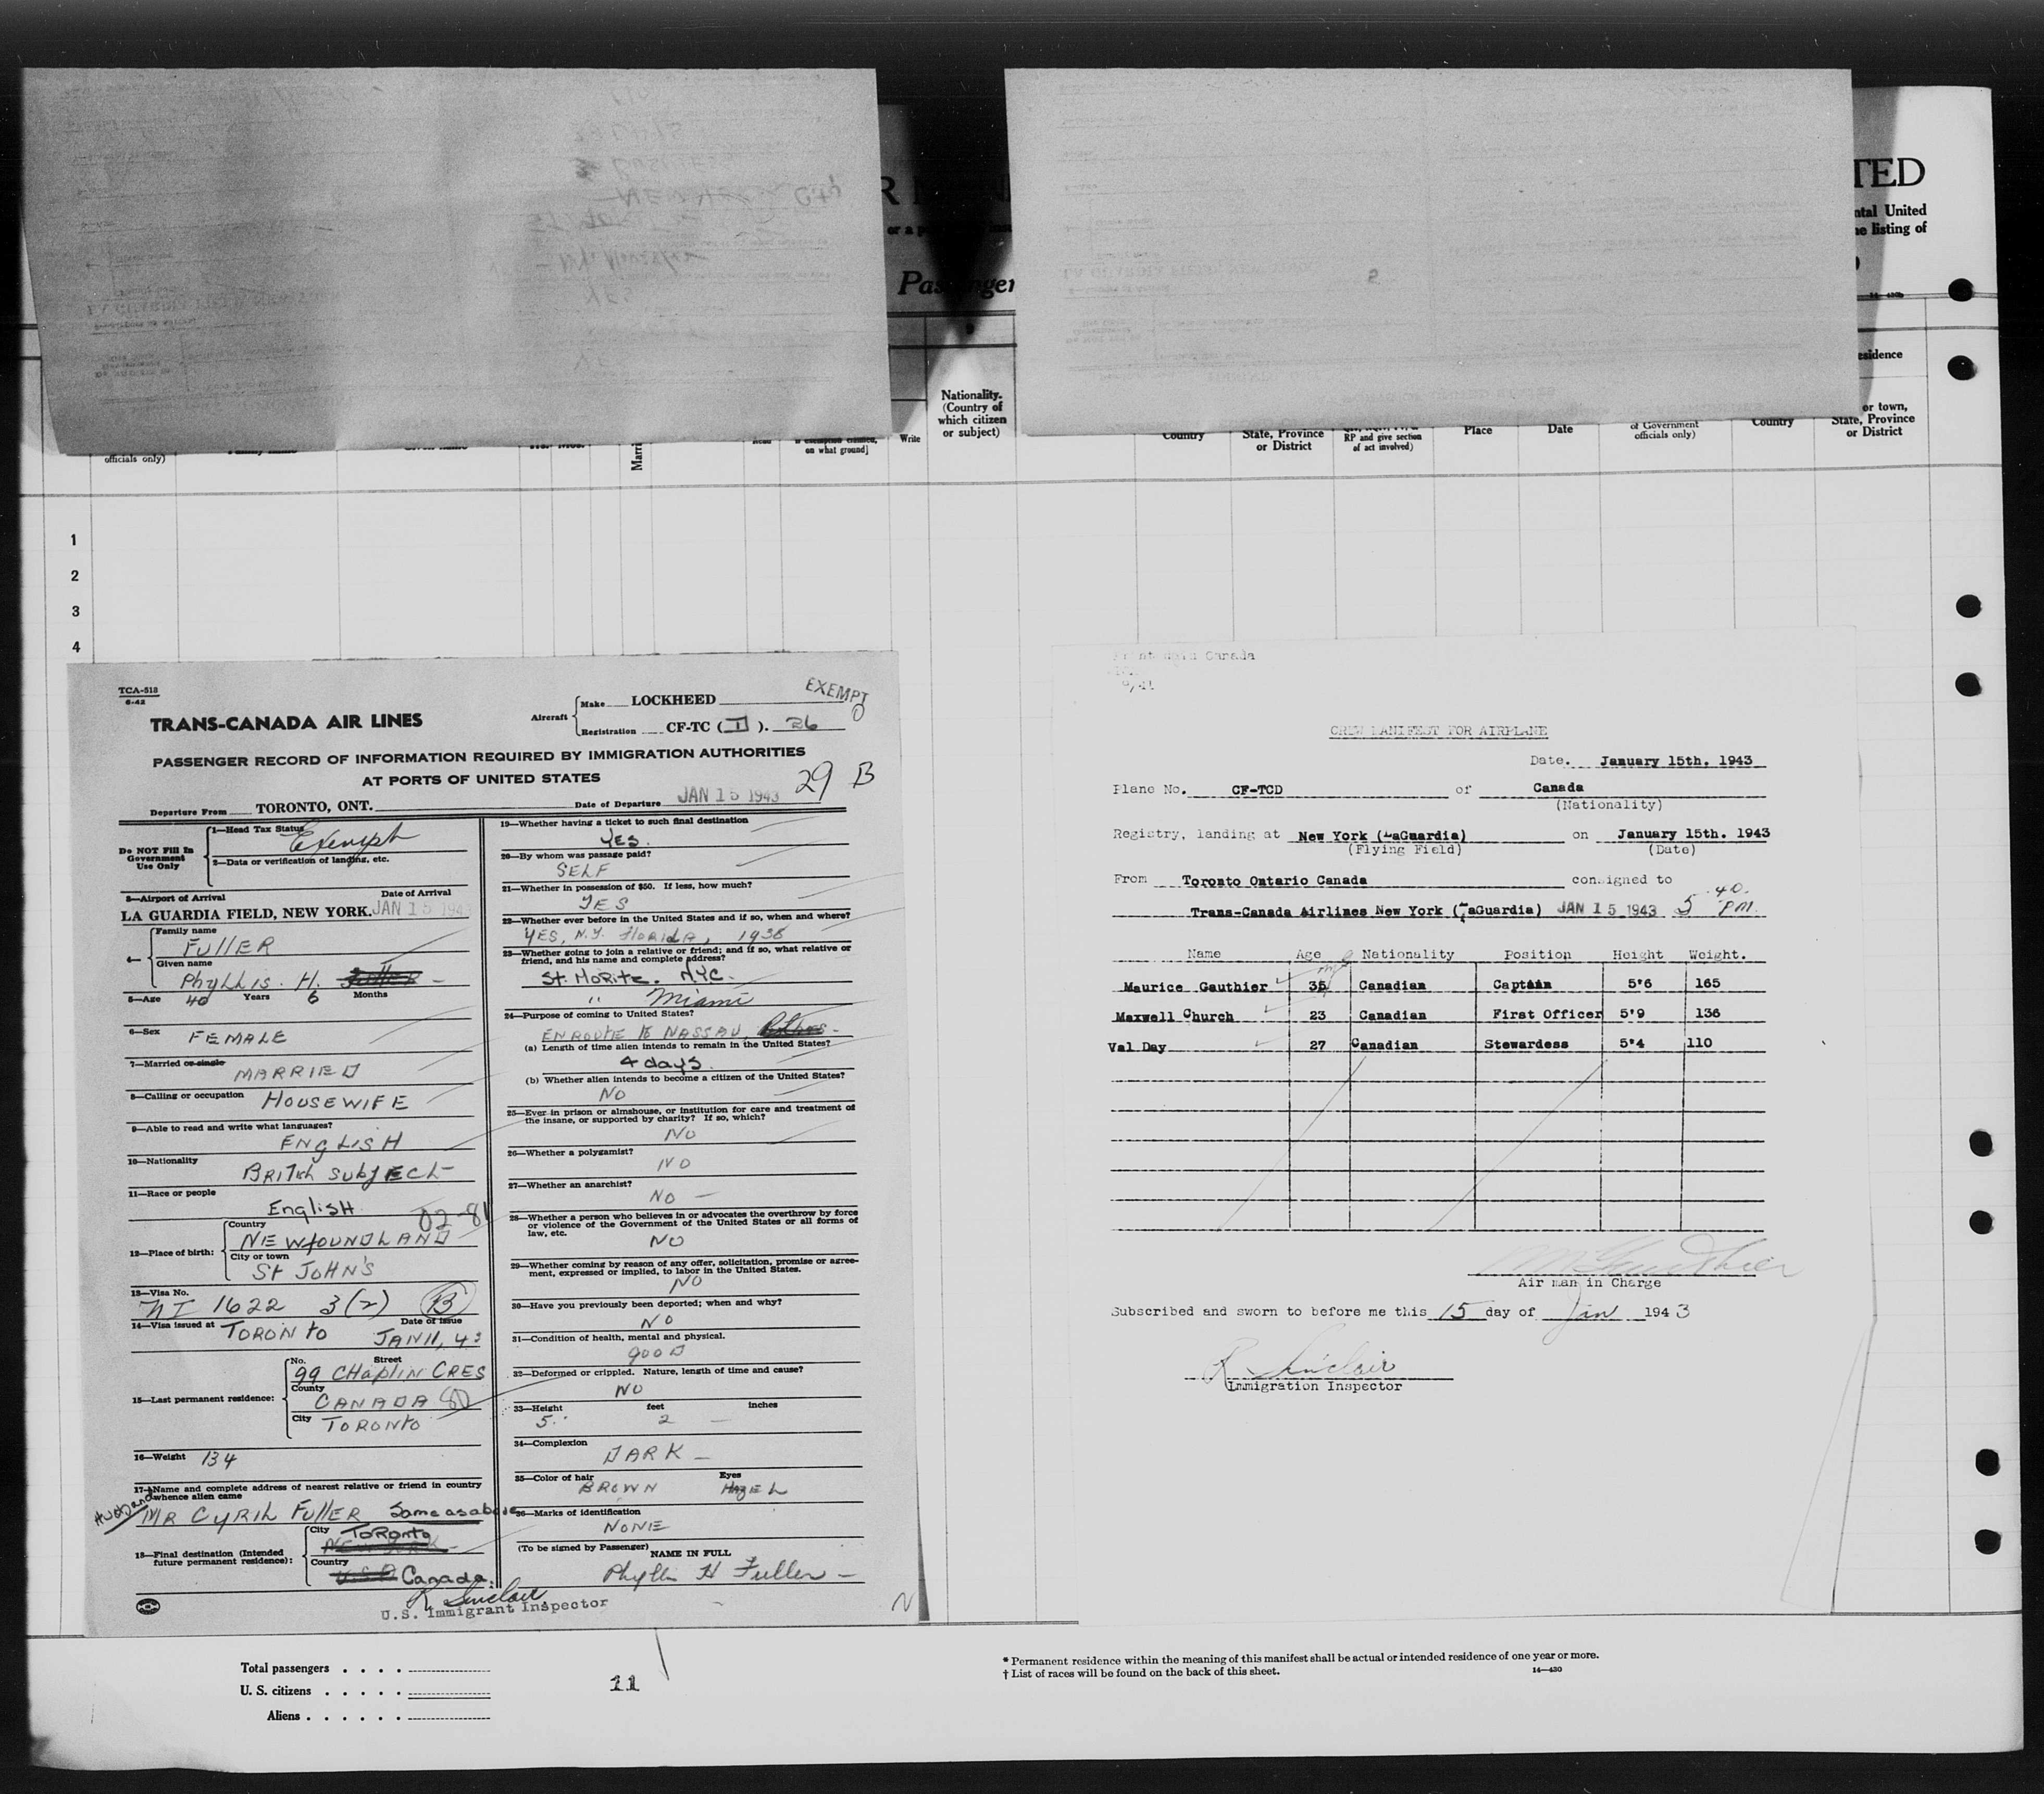 TED
ntal United
e listing of
Passenger
esidence
Nationality.
(Country of
which citizen
or subject)
officials only)
on what ground]
Write
Country
State, Province
or District
RP and give section
of act involved)
Place
Date
of Government
officials only)
Country
or town,
State, Province
or District
1
2
3
4
TCA-518
6-42
TRANS-CANADA AIR LINES
Aircraft
Make LOCKHEED
Registration CF-TC ( ). 26
EXEMPT
PASSENGER RECORD OF INFORMATION REQUIRED BY IMMIGRATION AUTHORITIES
AT PORTS OF UNITED STATES
29 B
Departure From TORONTO, ONT. Date of Departure JAN 15 1943
Do NOT Fill In
Government
Use Only
1—Head Tax Status Exempt
2—Data or verification of landing, etc.
3—Airport of Arrival Date of Arrival
LA GUARDIA FIELD, NEW YORK. JAN 15 1943
4—
Family name
FULLER
Given name
PHYLLIS. H.
5—Age 40 Years 6 Months
6—Sex
FEMALE
7—Married or single
MARRIED
8—Calling or occupation HOUSEWIFE
9—Able to read and write what languages?
ENGLISH
10—Nationality
BRITISH SUBJECT
11—Race or people
ENGLISH 02-81
12—Place of birth:
Country
NEWFOUNDLAND
City or town
St JOHN'S
13—Visa No.
NI 1622 3(2) B
14—Visa issued at TORONTO Date of Issue JAN 11, 43
15—Last permanent residence:
No. Street
99 CHAPLIN CRES
County
CANADA
City TORONTO
16—Weight 134
17—Name and complete address of nearest relative or friend in country
whence alien came
Husband
MR CYRIL FULLER Same as above
18—Final destination (Intended
future permanent residence):
City Toronto
NEW YORK
Country
U.S.A. Canada
R Sinclair
U.S. Immigrant Inspector
19—Whether having a ticket to such final destination
YES.
20—By whom was passage paid?
SELF
21—Whether in possession of $50. If less, how much?
YES
22—Whether ever before in the United States and if so, when and where?
YES, N.Y. FLORIDA, 1938
23—Whether going to join a relative or friend; and if so, what relative or
friend, and his name and complete address?
ST. MORITZ. NYC.
" Miami
24—Purpose of coming to United States?
ENROUTE TO NASSAU,
(a) Length of time alien intends to remain in the United States?
4 days.
(b) Whether alien intends to become a citizen of the United States?
NO
25—Ever in prison or almshouse, or institution for care and treatment of
the insane, or supported by charity? If so, which?
NO
26—Whether a polygamist?
NO
27—Whether an anarchist?
NO
28—Whether a person who believes in or advocates the overthrow by force
or violence of the Government of the United States or all forms of
law, etc.
NO
29—Whether coming by reason of any offer, solicitation, promise or agree-
ment, expressed or implied, to labor in the United States.
NO
30—Have you previously been deported; when and why?
NO
31—Condition of health, mental and physical.
GOOD
32—Deformed or crippled. Nature, length of time and cause?
NO
33—Height feet inches
5 2
34—Complexion
DARK
35—Color of hair Eyes
BROWN HAZEL
36—Marks of identification
NONE
(To be signed by Passenger)
NAME IN FULL
Phyllis H Fuller
N
Canada
CREW MANIFEST FOR AIRPLANE
Date. January 15th. 1943
Plane No. CF-TCD of Canada
(Nationality)
Registry, landing at New York (LaGuardia) on January 15th. 1943
(Flying Field) (Date)
From Toronto Ontario Canada consigned to
Trans-Canada Airlines New York (LaGuardia) JAN 15 1943 5 40 PM.
Name Age Nationality Position Height Weight.
Maurice Gauthier 35 Canadian Captain 5'6 165
Maxwell Church 23 Canadian First Officer 5'9 136
Val Day 27 Canadian Stewardess 5'4 110
M Gauthier
Air man in Charge
Subscribed and sworn to before me this 15 day of Jan 1943
R Sinclair
Immigration Inspector
Total passengers . . . .
U. S. citizens . . . . .
Aliens . . . . . .
11
* Permanent residence within the meaning of this manifest shall be actual or intended residence of one year or more.
† List of races will be found on the back of this sheet.
14—430